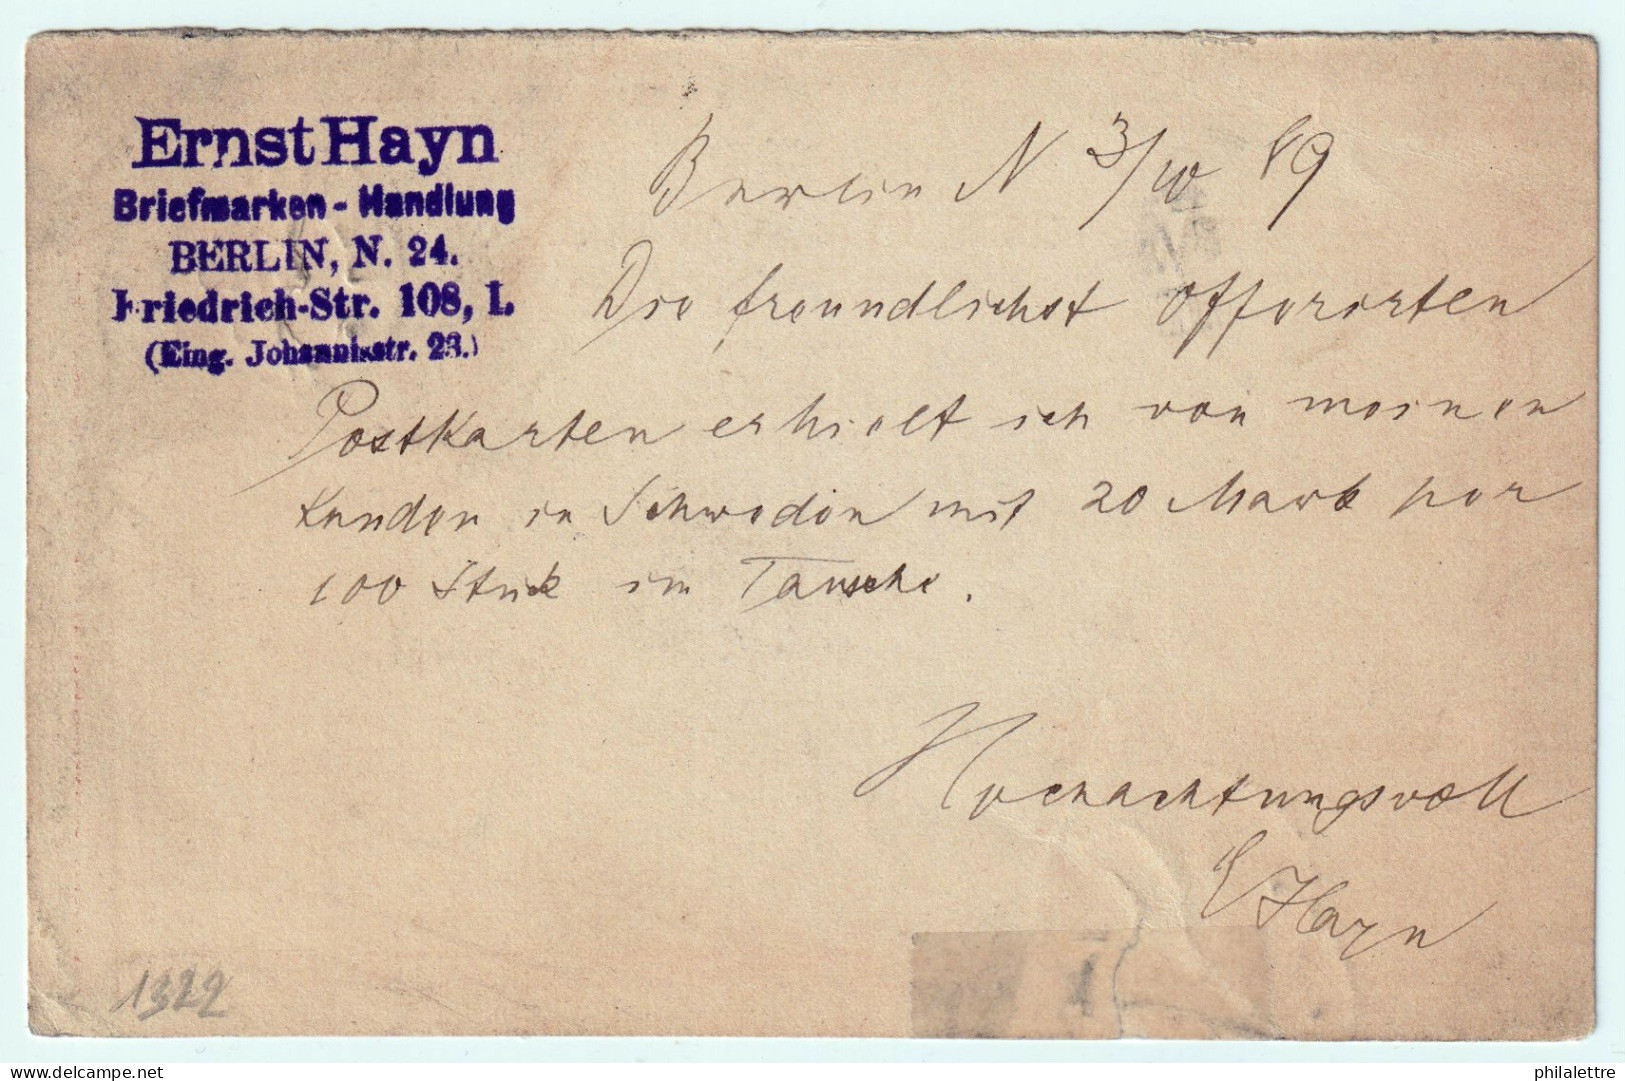 Ernst Hayn
Briefmarken-Handlung
BERLIN, N. 24.
Friedrich-Str. 108, I.
(Eing. Johannisstr. 23.)
Berlin N 3/10 89
Die freundlichst offerirten
Postkarten erhielt ich von meinen
Kunden in Schweden mit 20 Mark per
100 Stück im Tausche.
Hochachtungsvoll
E Hayn
1322
delcampe.net
philalettre